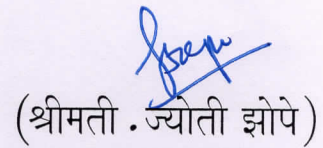 (श्रीमती . ज्योती झोपे)